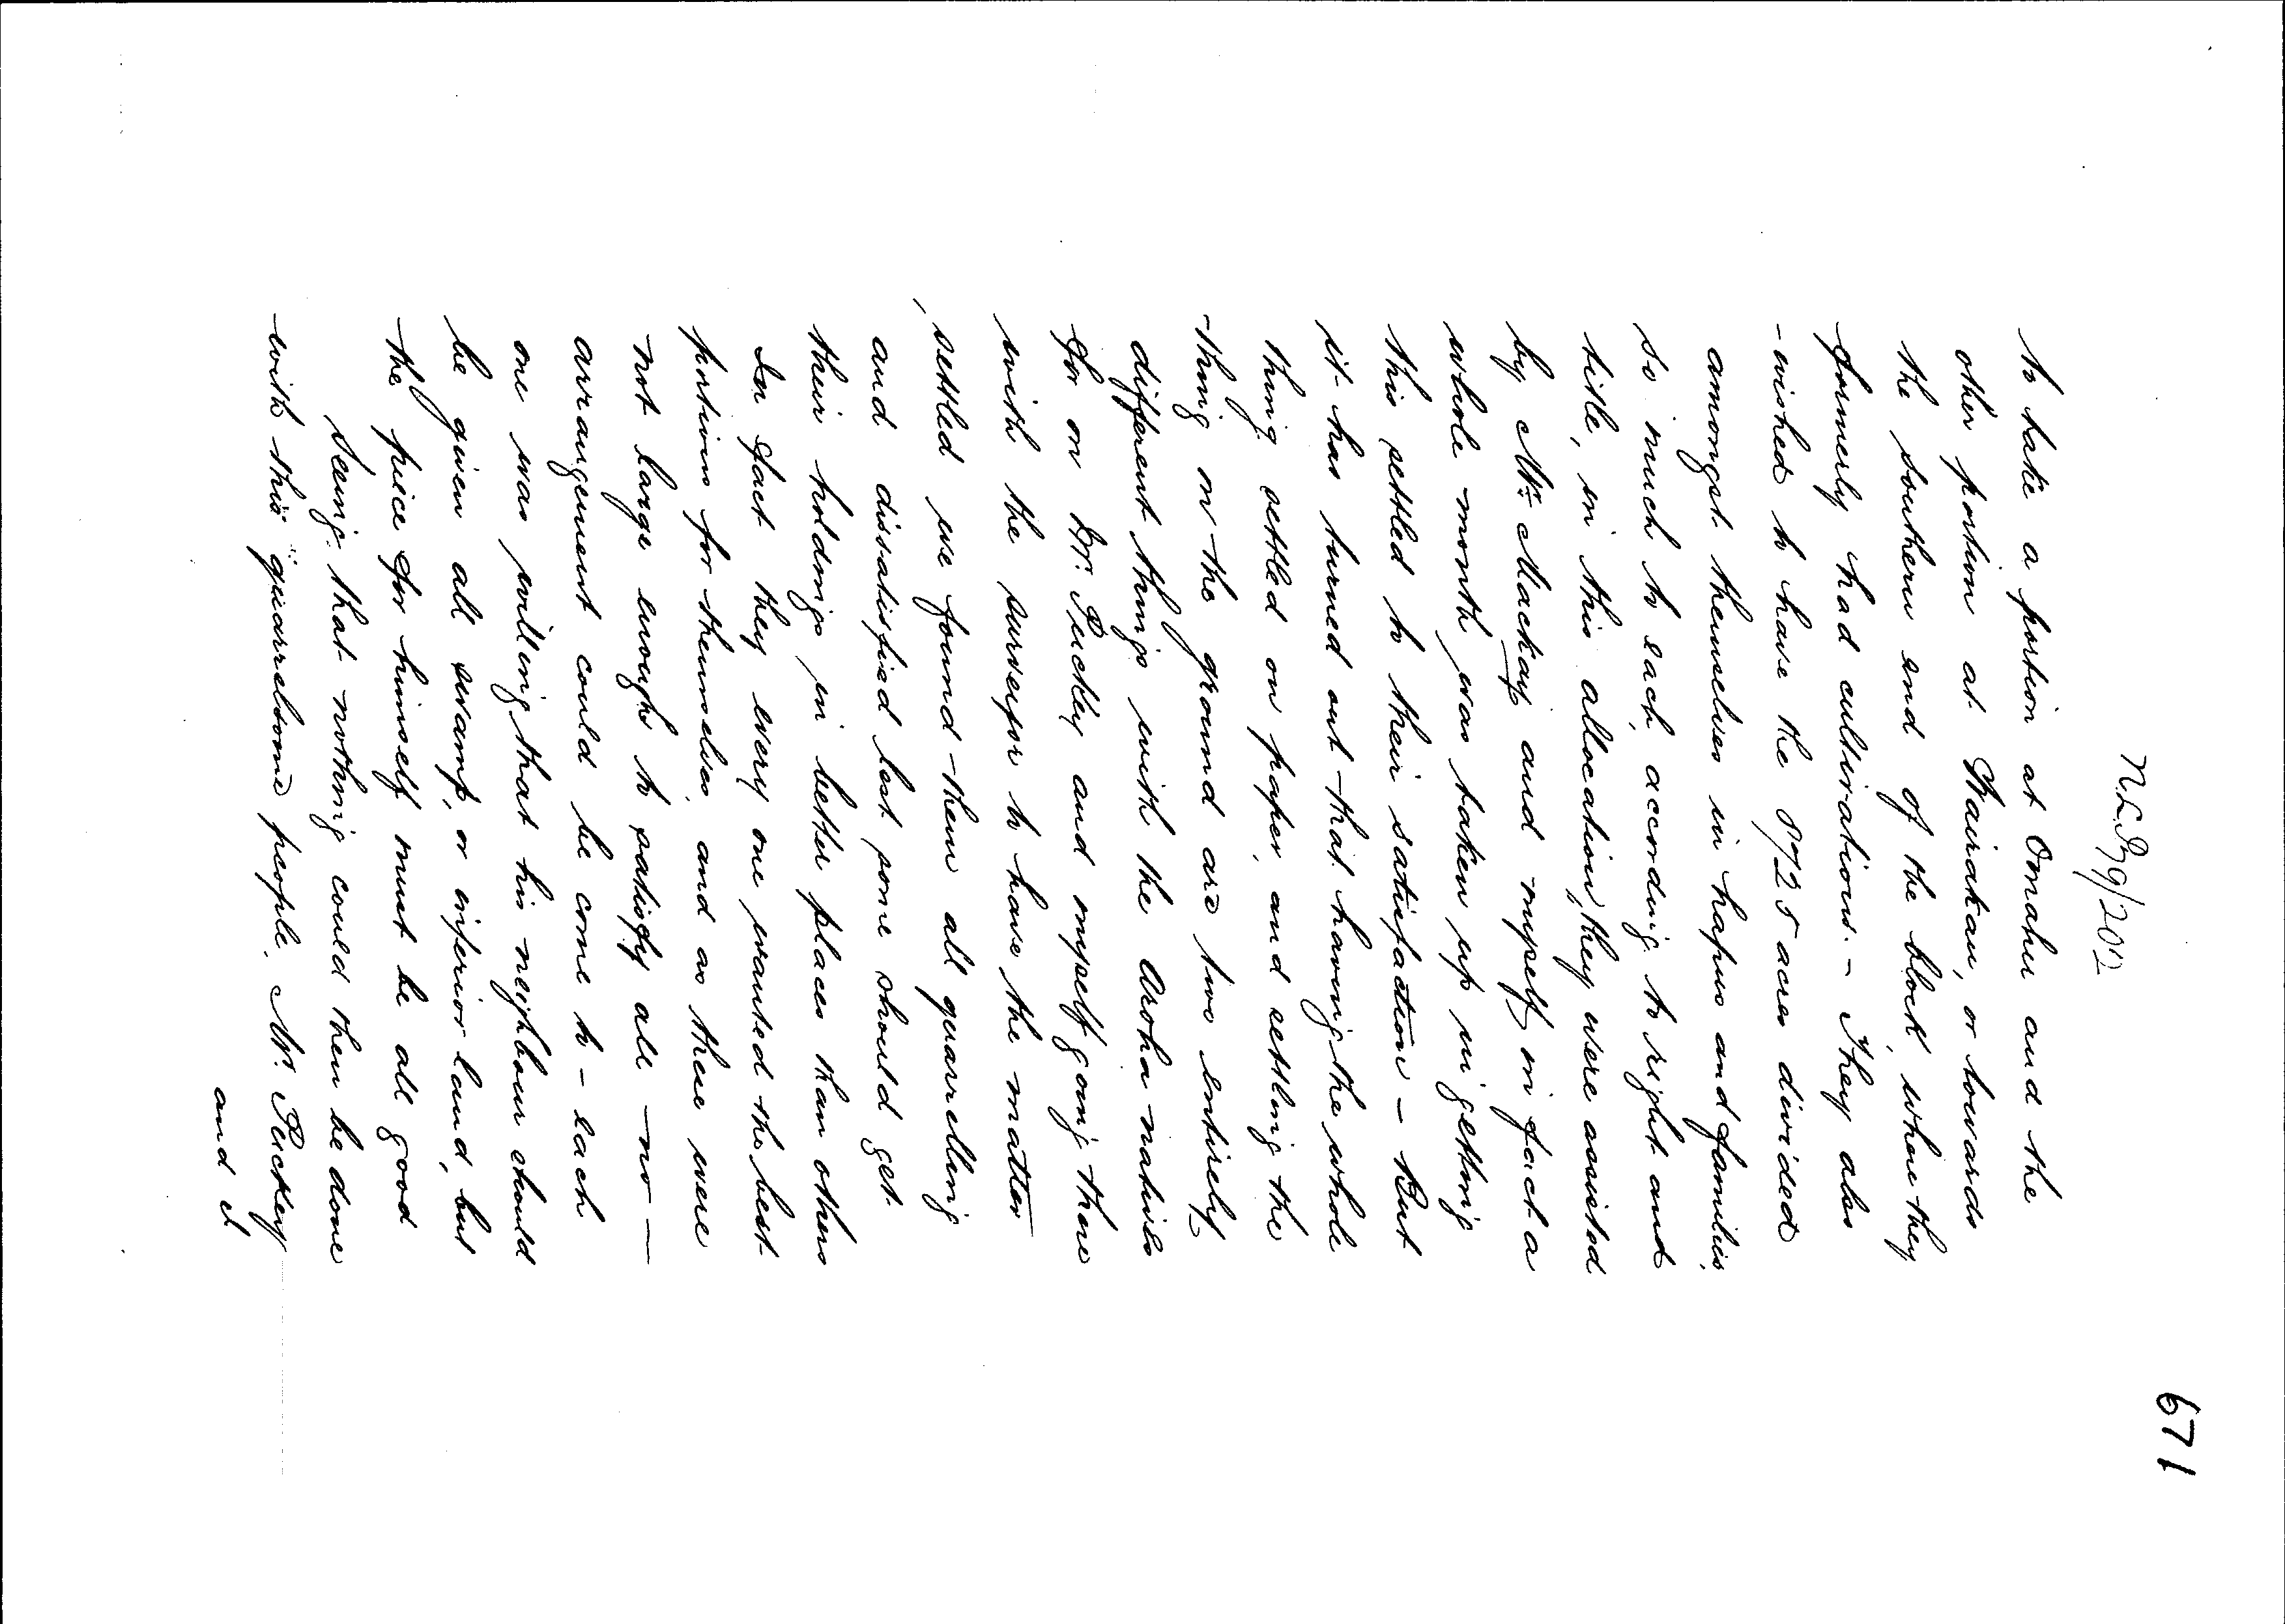 671
N.L.P. 79/2012
to take a portion at Omahu and the
other portion at Wairakau, or towards
the southern end of the block, where they
formerly had cultivations. – They also
wished to have the 8725 acres divided
amongst themselves in hapus and families,
so much to each, according to right and
title, in this allocation, they were assisted
by Mr. Mackay and myself, in fact a
whole month was taken up in getting
this settled to their satisfaction – But
it has turned out that having the whole
thing settled on paper, and settling the
thing on the ground are two entirely
different things with the Aroha natives
for on Mr. Puckey and myself going there
with the surveyor to have the matter
settled we found them all quarrelling
and dissatisfied lest some should get
their holdings in better places than others
In fact they every one wanted the best
portions for themselves, and as these were
not large enough to satisfy all – no –
arrangement could be come to – each
one was willing that his neighbour should
be given all swamp, or inferior land, but
the piece for himself must be all good
Seeing that nothing could then be done
with this quarrelsome people, Mr. Puckey
and I